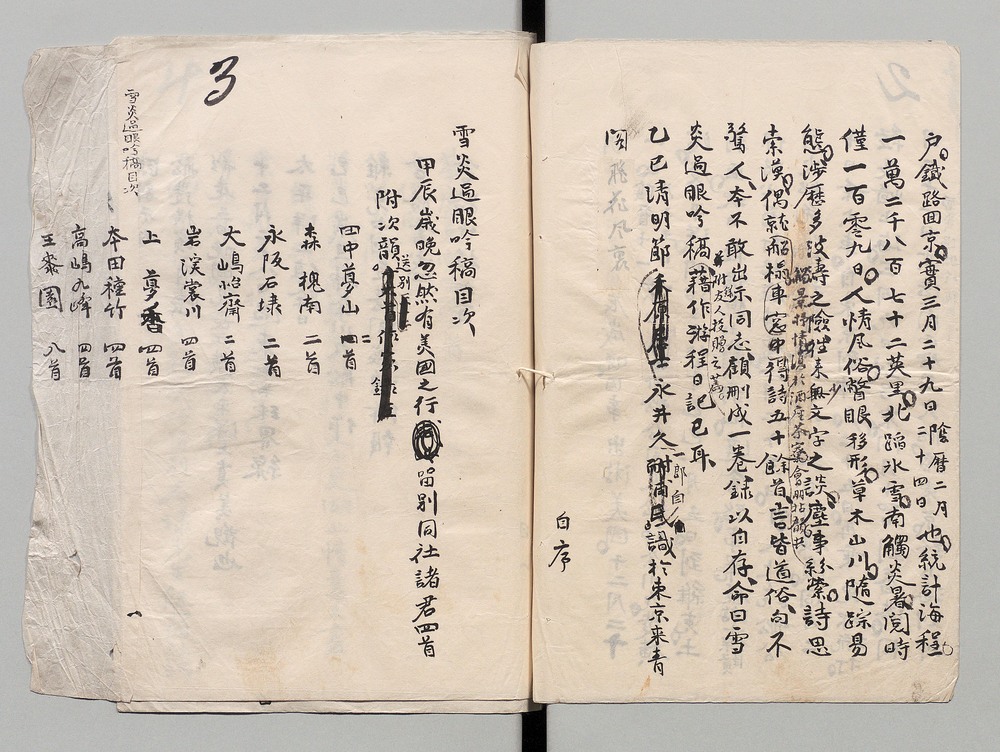 戶鐵路囬京實三月二十九日陰曆二月二十四日也統計海程
一萬二千八百七十二英里北蹈氷雪南觸炎暑閲時
僅一百零九日人情風俗瞥眼移形草木山川隨踪易
態涉歷多波濤之險往來無文字之談塵事紛縈詩思
索漠偶就船梯車窓中得詩五十餘首言皆道俗句不
驚人本不敢出示同志顧刪成一卷錄以自存命曰雪
炎過眼吟稿並附友人投贈之藉作游程日記已耳
乙巳清明節 永井久一郎自識於東京來青
閣
白序
2
3
雪炎過眼吟稿目次
甲辰歲晚忽然有美國之行 留別同社諸君四首
附次韻 送別
田中夢山 二首
森槐南 二首
永阪石埭 二首
大嶋怡齋 二首
岩溪裳川 四首
上夢香 四首
本田種竹 四首
高嶋九峰 四首
王黍園 八首
雪炎過眼吟稿目次